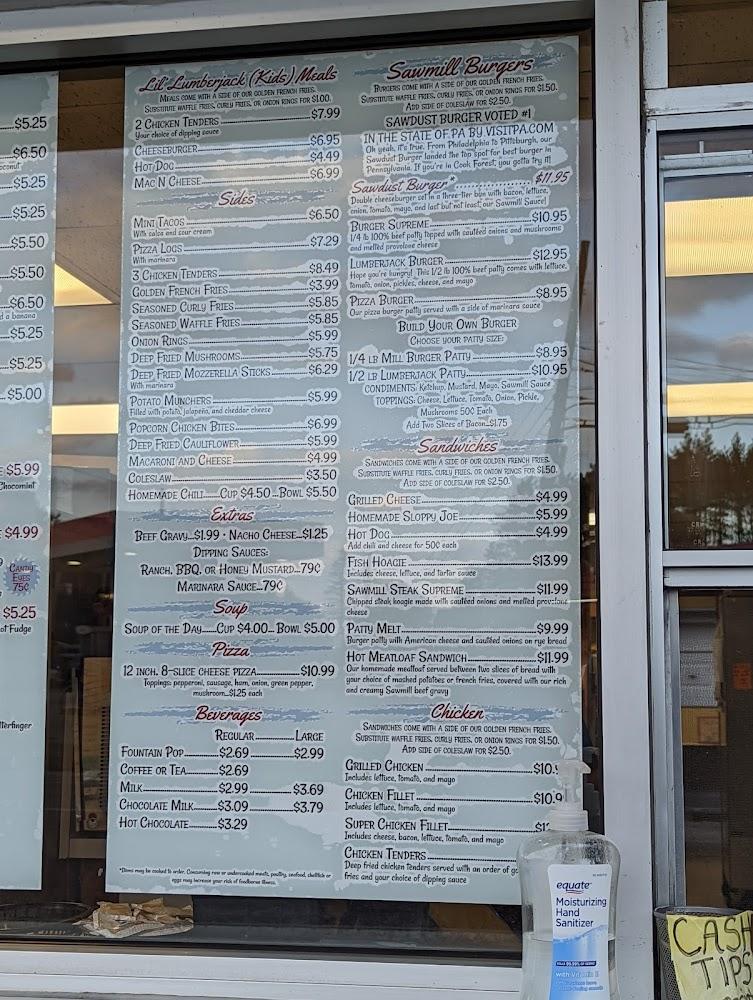 $5.25
$6.50
$5.25
$5.25
$5.50
$5.50
$6.50
d a banana
$5.25
$5.25
$5.00
$5.99
Chocomint
$4.99
CANDY
EYES
75¢
$5.25
ot Fudge
tterfinger
Lil' Lumberjack (Kids) Meals
MEALS COME WITH A SIDE OF OUR GOLDEN FRENCH FRIES.
SUBSTITUTE WAFFLE FRIES, CURLY FRIES, OR ONION RINGS FOR $1.00.
2 CHICKEN TENDERS $7.99
Your choice of dipping sauce
CHEESEBURGER $6.95
HOT DOG $4.49
MAC N CHEESE $6.99
Sides
MINI TACOS $6.50
With salsa and sour cream
PIZZA LOGS $7.29
With marinara
3 CHICKEN TENDERS $8.49
GOLDEN FRENCH FRIES $3.99
SEASONED CURLY FRIES $5.85
SEASONED WAFFLE FRIES $5.85
ONION RINGS $5.99
DEEP FRIED MUSHROOMS $5.75
DEEP FRIED MOZZERELLA STICKS $6.29
With marinara
POTATO MUNCHERS $5.99
Filled with potato, jalapeño, and cheddar cheese
POPCORN CHICKEN BITES $6.99
DEEP FRIED CAULIFLOWER $5.99
MACARONI AND CHEESE $4.99
COLESLAW $3.50
HOMEMADE CHILI......CUP $4.50...BOWL $5.50
Extras
BEEF GRAVY...$1.99 • NACHO CHEESE...$1.25
DIPPING SAUCES:
RANCH, BBQ, OR HONEY MUSTARD...79¢
MARINARA SAUCE...79¢
Soup
SOUP OF THE DAY......CUP $4.00... BOWL $5.00
Pizza
12 INCH, 8-SLICE CHEESE PIZZA $10.99
Toppings: pepperoni, sausage, ham, onion, green pepper,
mushroom...$1.25 each
Beverages
REGULAR LARGE
FOUNTAIN POP $2.69 $2.99
COFFEE OR TEA $2.69
MILK $2.99 $3.69
CHOCOLATE MILK $3.09 $3.79
HOT CHOCOLATE $3.29
*Items may be cooked to order. Consuming raw or undercooked meats, poultry, seafood, shellfish or
eggs may increase your risk of foodborne illness.
Sawmill Burgers
BURGERS COME WITH A SIDE OF OUR GOLDEN FRENCH FRIES.
SUBSTITUTE WAFFLE FRIES, CURLY FRIES, OR ONION RINGS FOR $1.50.
ADD SIDE OF COLESLAW FOR $2.50.
SAWDUST BURGER VOTED #1
IN THE STATE OF PA BY VISITPA.COM
Oh yeah, it's true. From Philadelphia to Pittsburgh, our
Sawdust Burger landed the top spot for best burger in
Pennsylvania. If you're in Cook Forest, you gotta try it!
Sawdust Burger* $11.95
Double cheeseburger set in a three-tier bun with bacon, lettuce,
onion, tomato, mayo, and last but not least, our Sawmill Sauce!
BURGER SUPREME $10.95
1/4 lb 100% beef patty topped with sautéed onions and mushrooms
and melted provolone cheese
LUMBERJACK BURGER $12.95
Hope you're hungry! This 1/2 lb 100% beef patty comes with lettuce,
tomato, onion, pickles, cheese, and mayo
PIZZA BURGER $8.95
Our pizza burger patty served with a side of marinara sauce
BUILD YOUR OWN BURGER
CHOOSE YOUR PATTY SIZE:
1/4 LB MILL BURGER PATTY $8.95
1/2 LB LUMBERJACK PATTY $10.95
CONDIMENTS: Ketchup, Mustard, Mayo, Sawmill Sauce
TOPPINGS: Cheese, Lettuce, Tomato, Onion, Pickle,
Mushrooms 50¢ Each
Add Two Slices of Bacon...$1.75
Sandwiches
SANDWICHES COME WITH A SIDE OF OUR GOLDEN FRENCH FRIES.
SUBSTITUTE WAFFLE FRIES, CURLY FRIES, OR ONION RINGS FOR $1.50.
ADD SIDE OF COLESLAW FOR $2.50.
GRILLED CHEESE $4.99
HOMEMADE SLOPPY JOE $5.99
HOT DOG $4.99
Add chili and cheese for 50¢ each
FISH HOAGIE $13.99
Includes cheese, lettuce, and tartar sauce
SAWMILL STEAK SUPREME $11.99
Chipped steak hoagie made with sautéed onions and melted provolone
cheese
PATTY MELT $9.99
Burger patty with American cheese and sautéed onions on rye bread
HOT MEATLOAF SANDWICH $11.99
Our homemade meatloaf served between two slices of bread with
your choice of mashed potatoes or french fries, covered with our rich
and creamy Sawmill beef gravy
Chicken
SANDWICHES COME WITH A SIDE OF OUR GOLDEN FRENCH FRIES.
SUBSTITUTE WAFFLE FRIES, CURLY FRIES, OR ONION RINGS FOR $1.50.
ADD SIDE OF COLESLAW FOR $2.50.
GRILLED CHICKEN $10.
Includes lettuce, tomato, and mayo
CHICKEN FILLET $10.9
Includes lettuce, tomato, and mayo
SUPER CHICKEN FILLET
Includes cheese, bacon, lettuce, tomato, and mayo
CHICKEN TENDERS
Deep fried chicken tenders served with an order of go
fries and your choice of dipping sauce
equate
Moisturizing
Hand
Sanitizer
CASH
TIPS